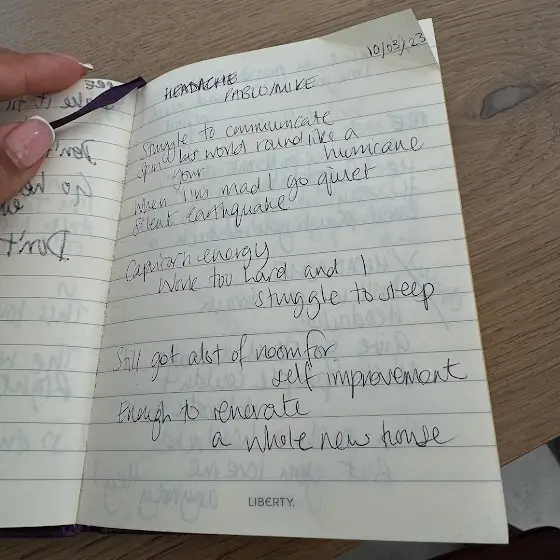 10/03/23
HEADACHE
PABLO/MIKE
Struggle to communicate
spin your world round like a
hurricane
When I'm mad I go quiet
Silent earthquake
Capricorn energy
Work too hard and I
struggle to sleep
Still got alot of room for
self improvement
Enough to renovate
a whole new house
LIBERTY.
Don't
Go
Don't